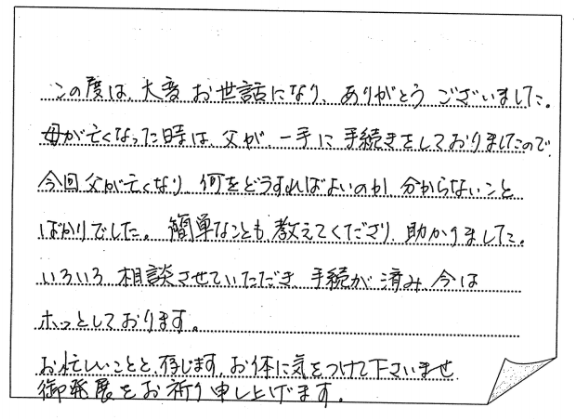 この度は、大変お世話になり、ありがとうございました。
母が亡くなった時は、父が、一手に手続きをしておりましたので、
今回父が亡くなり、何をどうすればよいのか、分からないこと
ばかりでした。簡単なことも、教えてくださり、助かりました。
いろいろ相談させていただき、手続が済み、今は
ホッとしております。
お忙しいことと、存じます、お体に気をつけて下さいませ。
御発展をお祈り申し上げます。